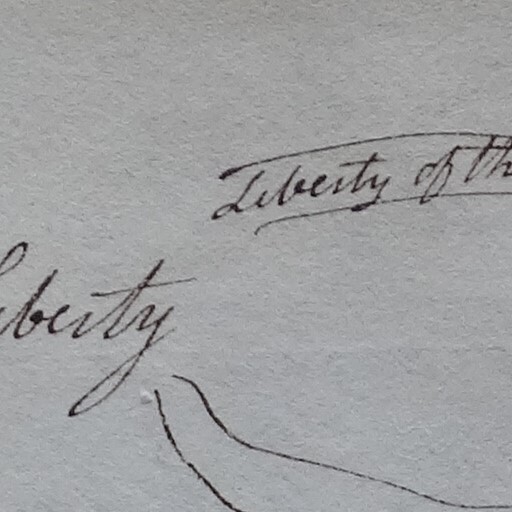 Liberty of th
Liberty